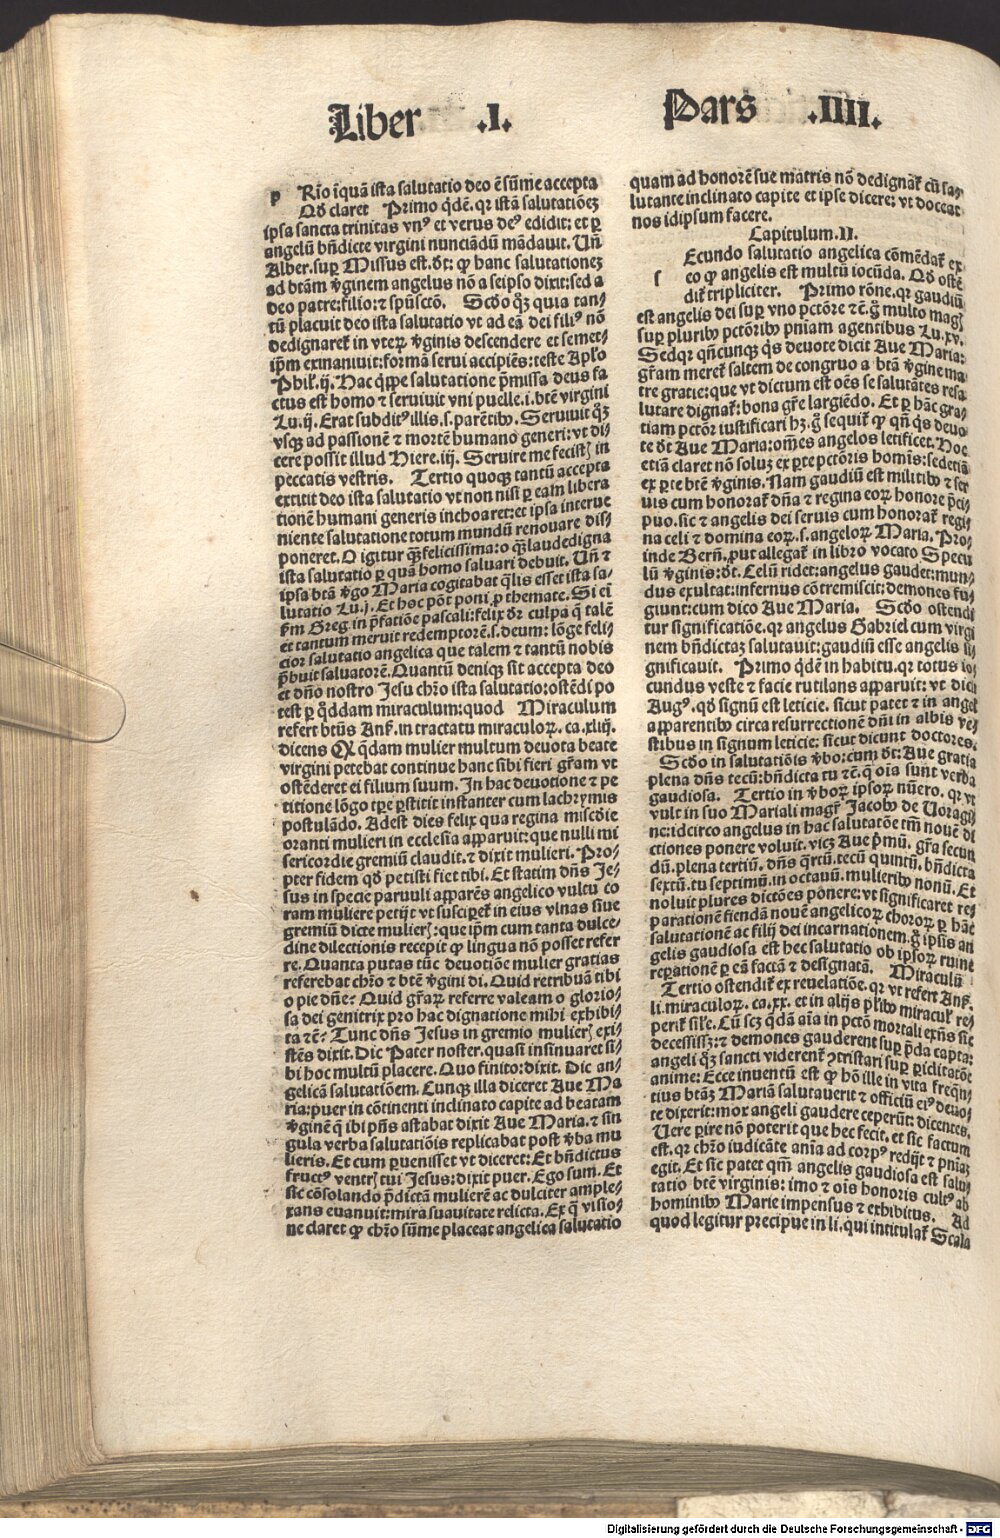 Liber .I.
Pars .IIII.
p Rio īquā ista salutatio deo ē sūme accepta
Qd claret Primo qdē. qr istā salutationeʒ
ipsa sancta trinitas vnꝰ et verus deꝰ edidit: et ꝑ
angelū bn̄dicte virgini nunciādū mādauit. Un̄
Alber. suꝑ Missus est. dt: ꝙ hanc salutationeʒ
ad btām v̄ginem angelus nō a seipso dixit: sed a
deo patre: filio: ⁊ spūsctō. Scdo qʒ quia tan⸗
tū placuit deo ista salutatio vt ad eā dei filiꝰ nō
dedignaret̄ in vteꝝ v̄ginis descendere et semet⸗
ip̄m exinaniuit: formā serui accipiēs: teste Apl̄o
Phil̓. ij. Hac q̄ppe salutatione p̄missa deus fa
ctus est homo ⁊ seruiuit vni puelle. i. btē virgini
Lu. ij. Erat subditꝰ illis. s. parētibꝰ. Seruiuit qʒ
vsqʒ ad passionē ⁊ mortē humano generi: vt di⸗
cere possit illud Hiere. iij. Seruire me fecistꝭ in
peccatis vestris. Tertio quoqʒ tantū accepta
extitit deo ista salutatio vt non nisi ꝑ eam libera
tionē humani generis inchoaret: et ipsa interue
niente salutatione totum mundū renouare dis⸗
poneret. O igitur qʒ felicissima: o qʒ laudedigna
ista salutatio ꝑ quā homo saluari debuit. Un̄ ⁊
ipsa btā v̄go Maria cogitabat q̄lis esset ista sa⸗
lutatio Lu. j. Et hoc pōt poni ꝓ themate. Si ei
ſm Greg in p̄fatiōe pascali: felix dr̄ culpa q̄ talē
et tantum meruit redemptorē. s. deum: lōge feli⸗
cior salutatio angelica que talem ⁊ tantū nobis
p̄buit saluatorē. Quantū deniqʒ sit accepta deo
et dn̄o nostro Jesu chro ista salutatio: ostēdi po
test ꝑ q̄ddam miraculum: quod Miraculum
refert btūs Ans̄. in tractatu miraculoꝝ. ca. xliij.
dicens Qꝭ q̄dam mulier multum deuota beate
virgini petebat continue hanc sibi fieri gr̄am vt
ostēderet ei filium suum. In hac deuotione ⁊ pe
titione lōgo tpe ꝑstitit instanter cum lachrymis
postulādo. Adest dies felix qua regina miscdie
oranti mulieri in ecclesia apparuit: que nulli mi
sericordie gremiū claudit. ⁊ dixit mulieri. Pro⸗
pter fidem qd petisti fiet tibi. Et statim dn̄s Je⸗
sus in specie paruuli apparēs angelico vultu co
ram muliere petijt vt susciperet̄ in eius vlnas siue
gremiū dicte mulierꝭ: que ip̄m cum tanta dulce⸗
dine dilectionis recepit ꝙ lingua nō posset refer
re. Quanta putas tūc deuotiōe mulier gratias
referebat chro ⁊ btē v̄gini di. Quid retribuā tibi
o pie dn̄e: Quid gr̄aꝝ referre valeam o glorio⸗
sa dei genitrix pro hac dignatione mihi exhibi⸗
ta ⁊c̄: Tunc dn̄s Jesus in gremio mulierꝭ exi⸗
stēs dixit. Dic Pater noster. quasi insinuaret si⸗
bi hoc multū placere. Quo finito: dixit. Dic an⸗
gelicā salutatiōem. Cunqʒ illa diceret Aue Ma
ria: puer in cōtinenti inclinato capite ad beatam
v̄ginē q̄ ibi pn̄s astabat dixit Aue Maria. ⁊ sin
gula verba salutatiōis replicabat post v̄ba mu
lieris. Et cum ꝑuenisset vt diceret: Et bn̄dictus
fructꝰ ventrꝭ tui Jesus: dixit puer. Ego sum. Et
sic cōsolando p̄dictā mulierē ac dulciter ample⸗
xans euanuit: mira suauitate relicta. Ex q̄ visio⸗
ne claret ꝙ chro sūme placeat angelica salutatio
quam ad honorē sue matris nō dedignat̄ cū sa⸗
lutante inclinato capite et ipse dicere: vt doceat
nos idipsum facere.
Capitulum. II.
s Ecundo salutatio angelica cōmēdat̄ ex
eo ꝙ angelis est multū iocūda. Qd ostē
dit̄ tripliciter. Primo rōne. qr gaudiū
est angelis dei suꝑ vno pctōre ⁊c̄. g̊ multo magꝭ
suꝑ pluribꝰ pctōribꝰ pniam agentibus Lu. xv.
Sedqr qn̄cunqʒ q̄s deuote dicit Aue Maria:
gr̄am meret̄ saltem de congruo a btā v̄gine ma
tre gratie: que vt dictum est oēs se salutātes resa
lutare dignat̄: bona gr̄e largiēdo. Et ꝑ hāc gra⸗
tiam pctōr iustificari hʒ. g̊ sequit̄ ꝙ qn̄ q̄s deuo
te dt Aue Maria: omēs angelos letificet. Hoc
etiā claret nō soluʒ ex ꝑte pctōris homīs: sedetiā
ex ꝑte btē v̄ginis. Nam gaudiū est militibꝰ ⁊ ser
uis cum honorat̄ dn̄a ⁊ regina eoꝝ honore p̄ci⸗
puo. sic ⁊ angelis dei seruis cum honorat̄ regi⸗
na celi ⁊ domina eoꝝ. s. angeloꝝ Maria. Pro⸗
inde Bern̄. ꝓut allegat̄ in libro vocato Specu
lū v̄ginis: dt. Celū ridet: angelus gaudet: mun⸗
dus exultat: infernus cōtremiscit: demones fu⸗
giunt: cum dico Aue Maria. Scdo ostendi
tur significatiōe. qr angelus Gabriel cum virgi
nem bn̄dictaʒ salutauit: gaudiū esse angelis si⸗
gnificauit. Primo qdē in habitu. qr totus io⸗
cundus veste ⁊ facie rutilans apparuit: vt dicit
Augꝰ. qd signū est leticie. sicut patet ⁊ in angel̓
apparentibꝰ circa resurrectionē dn̄i in albis ve⸗
stibus in signum leticie: sicut dicunt doctores.
Scdo in salutatiōis v̄bo: cum dt: Aue gratia
plena dn̄s tecū: bn̄dicta tu ⁊c̄. q̄ oīa sunt verba
gaudiosa. Tertio in v̄boꝝ ipsoꝝ nūero. qr vt
vult in suo Mariali magr̄ Jacobꝰ de Uoragi
ne: idcirco angelus in hac salutatōe tm̄ nouē di
ctiones ponere voluit. vicʒ Aue p̄mū. gr̄a secun
dū. plena tertiū. dn̄s q̄rtū. tecū quintū. bn̄dicta
sextū. tu septimū. in octauū. mulieribꝰ nonū. Et
noluit plures dictōes ponere: vt significaret re⸗
parationē fiendā nouē angelicoꝝ choroꝝ ꝑ hāc
salutationē ac filij dei incarnationem. g̊ ipsis an
gelis gaudiosa est hec salutatio ob ipsoꝝ ruine
reꝑationē ꝑ eā factā ⁊ designatā. Miraculū
Tertio ostendit̄ ex reuelatiōe. qr vt refert Ans̄.
li. miraculoꝝ. ca. xx. et in alijs pl̄ibꝰ miracul̓ re⸗
perit̄ sil̄e. Cū scʒ q̄dā aīa in pctō mortali exn̄s sic
decessissʒ: ⁊ demones gauderent suꝑ p̄da capta:
angeli qʒ sancti viderent̄ ꝯtristari suꝑ ꝑiclitatōe
anime: Ecce inuentū est ꝙ hō ille in vita freqn̄⸗
tius btāʒ Mariā salutauerit ⁊ officiū eiꝰ deuo⸗
te dixerit: mox angeli gaudere ceperūt: dicentes.
Uere ꝑire nō poterit que hec fecit. et sic factum
est. qr chro iudicāte anīa ad corpꝰ redijt ⁊ pniaʒ
egit. Et sic patet qm̄ angelis gaudiosa est salu⸗
tatio btē virginis: imo ⁊ oīs honoris cultꝰ ab
hominibꝰ Marie impensus ⁊ exhibitus. Ad
quod legitur precipue in li. qui intitulat̄ Scala
Digitalisierung gefördert durch die Deutsche Forschungsgemeinschaft - DFG